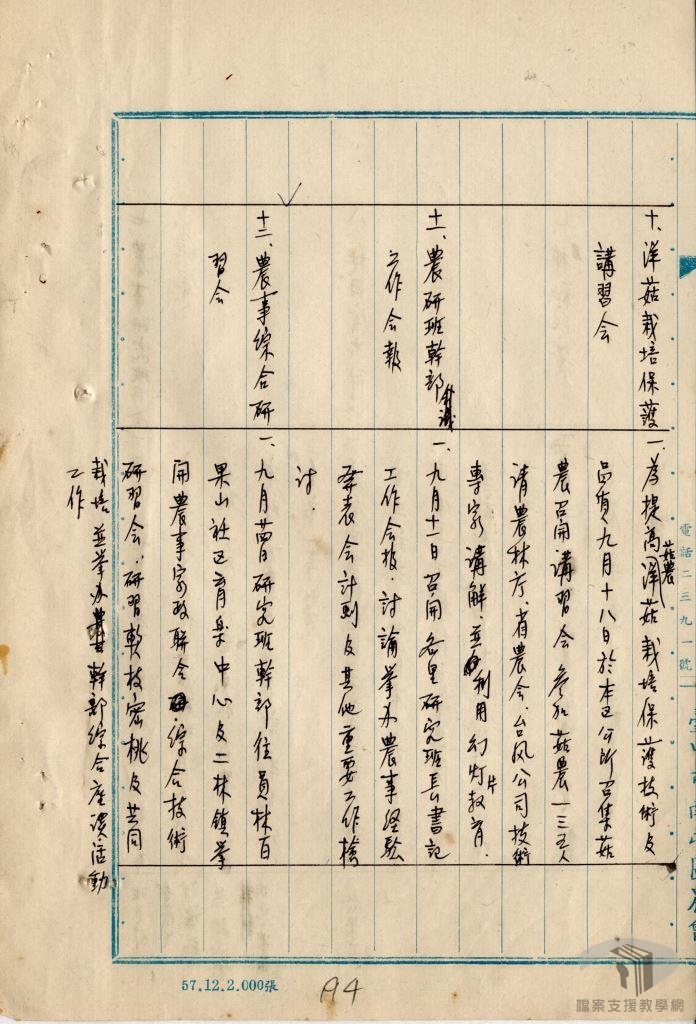 十、洋菇栽培保護
講習会
一、為提高菇農洋菇栽培保護技術及
品質九月十八日於本区公所召集菇
農召開講習会參加菇農一三五人
请農林厅、省農会、台凤公司技術
專家講解.並利用幻灯片教育.
十一、農研班幹部
工作会報
一、九月十一日召開各里研究班長書記
工作会报.討論举办農事経驗
發表会計划及其他重要工作檢
讨.
十二、農事綜合研
習会
一、九月廿四日研究班幹部往員林百
果山社区育樂中心及二林鎮举
開農事家政联合綜合技術
研習会.研習軟枝蜜桃及共同
栽培並举办幹部綜合座谈活動
工作
電話二三九一號
57.12.2.000張
A4
檔案支援教學網